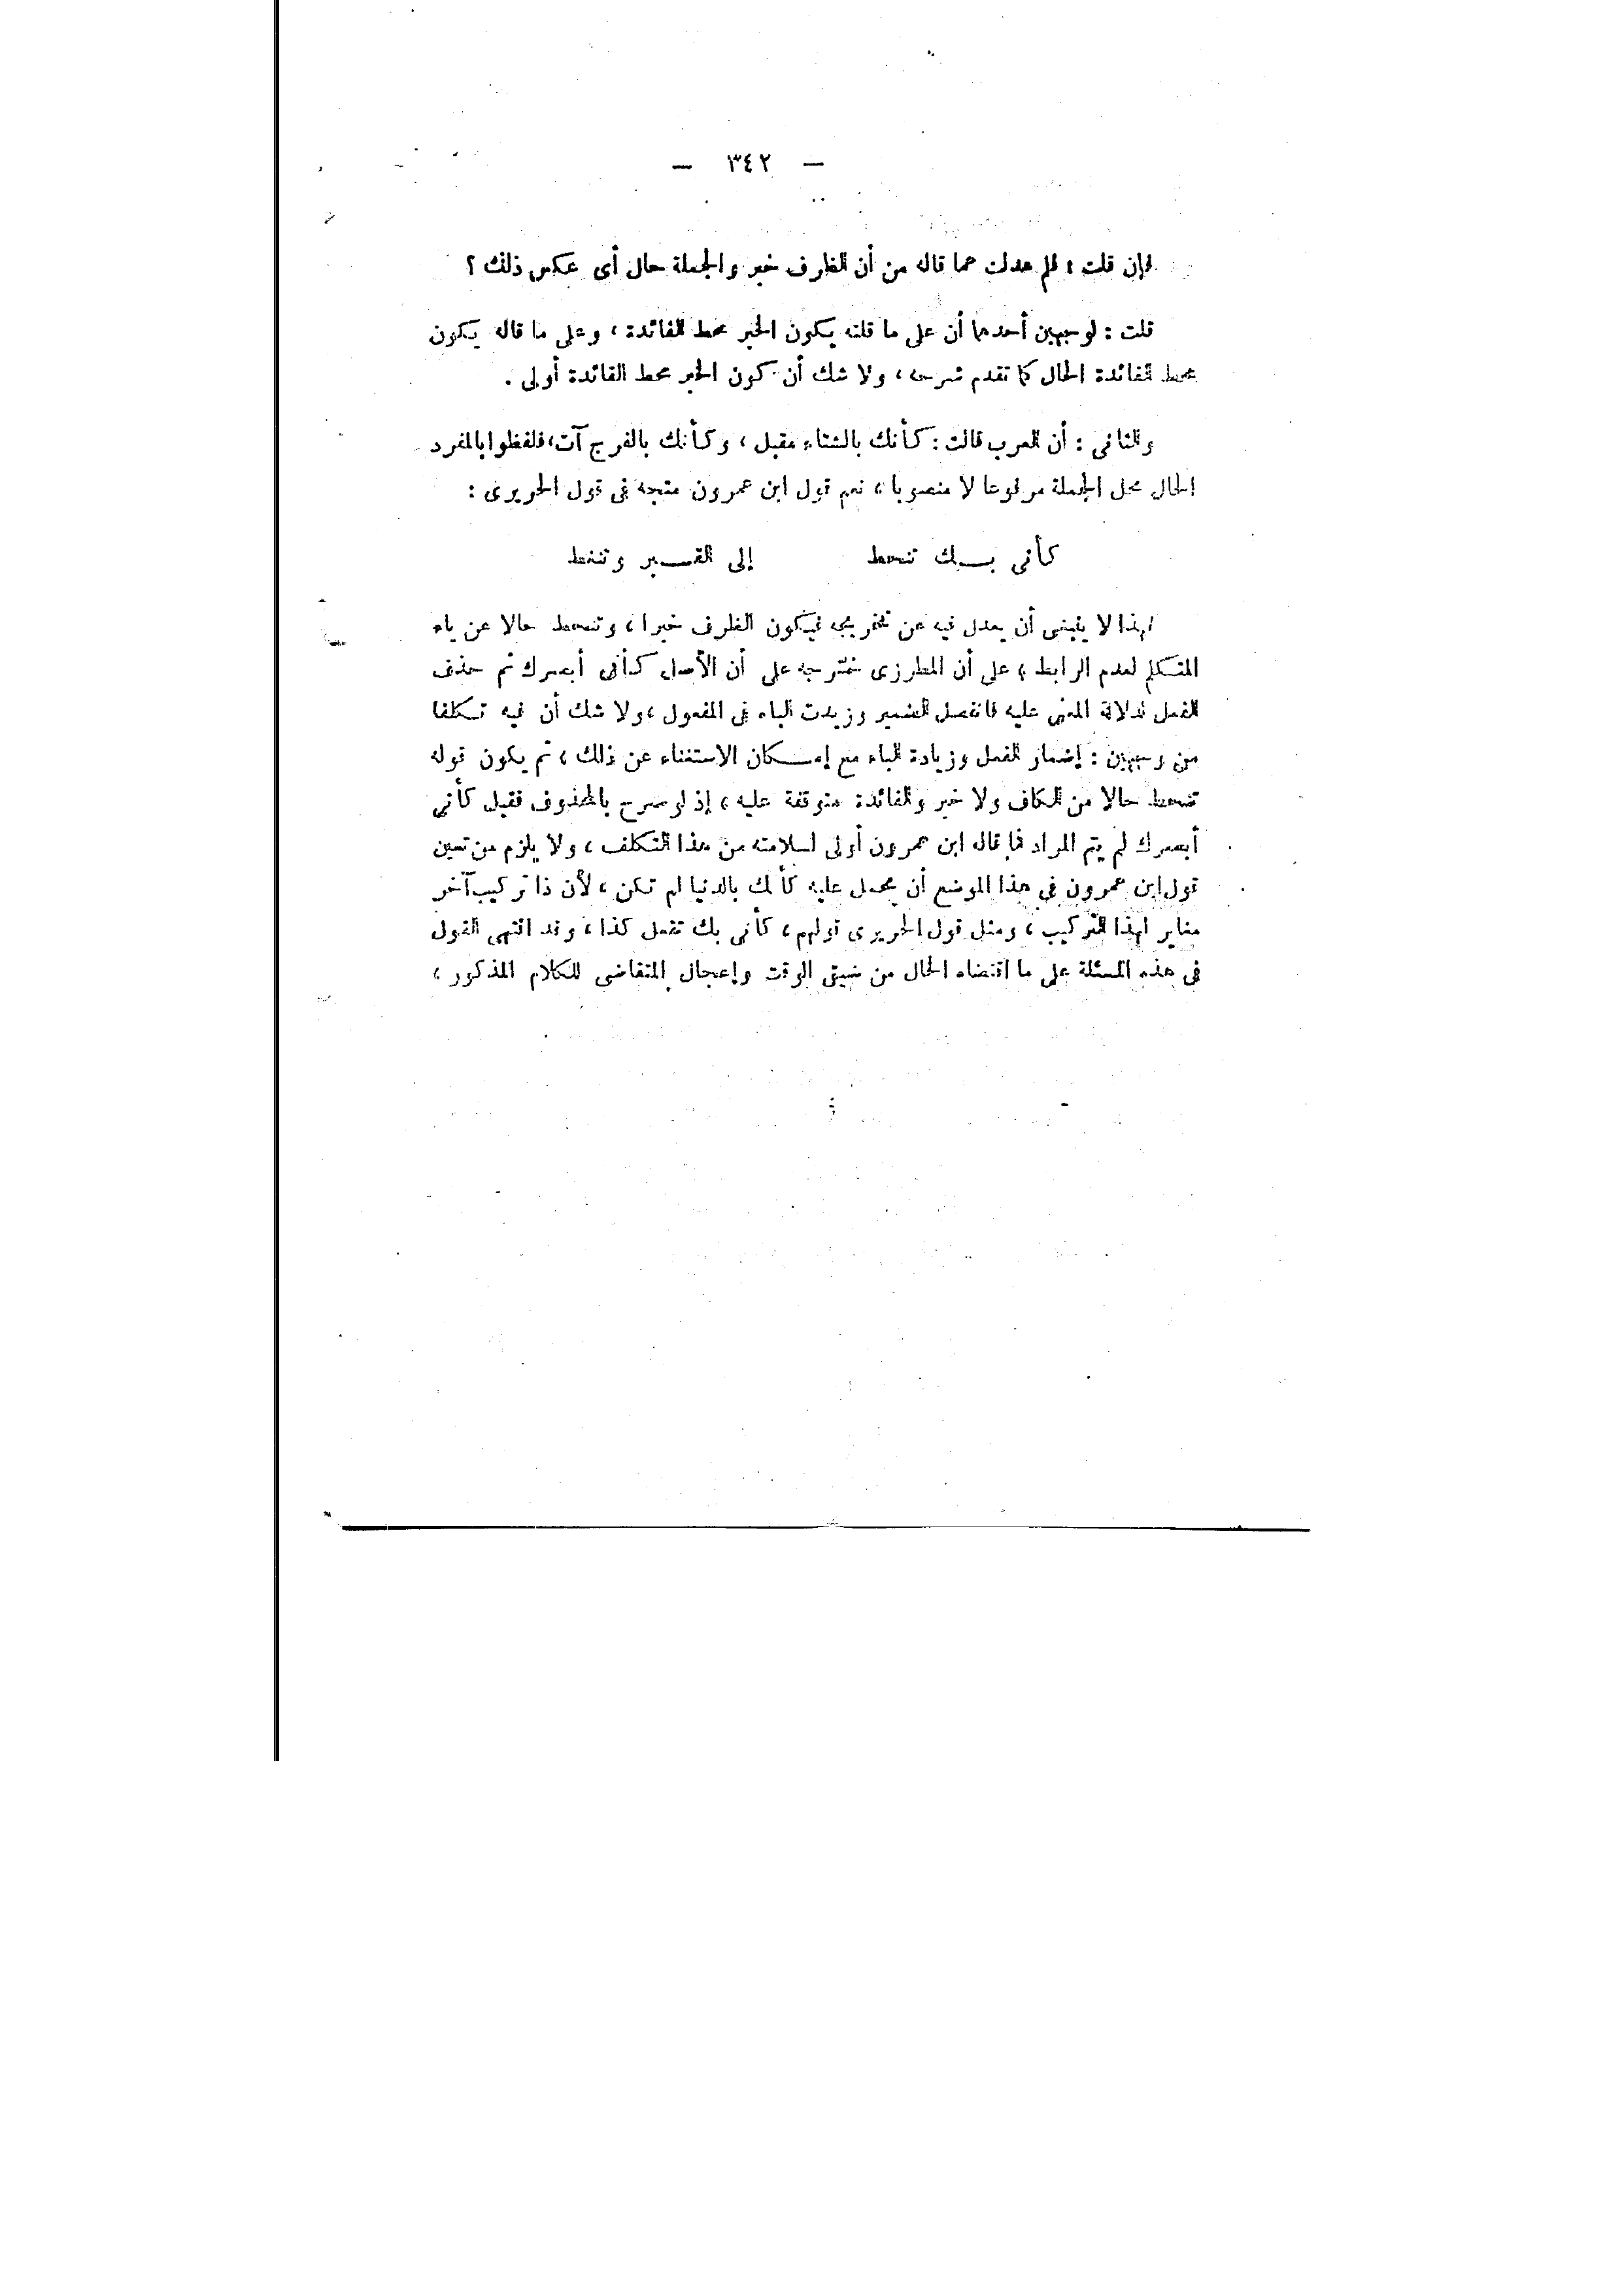 — ٣٤٢ —
فإن قلت : فلم عدلت عما قاله من أن الظرف خبر والجملة حال أى عكس ذلك ؟
قلت : لوجهين أحدهما أن على ما قلته يكون الخبر محط الفائدة ، وعلى ما قاله يكون
محط الفائدة الحال كما تقدم شرحه ، ولا شك أن كون الخبر محط الفائدة أولى .
والثانى : أن العرب قالت : كأنك بالشتاء مقبل ، وكأنك بالفرج آت ، فلفظوا بالمفرد
الحال محل الجملة مرفوعا لا منصوبا ، نعم قول ابن عمرون متجه فى قول الحريرى :
كأنى بــك تنحط إلى القــبر وتنغط
لهذا لا ينبغى أن يعدل فيه عن تخريجه فيكون الظرف خبرا ، وتنحط حالا عن ياء
المتكلم لعدم الرابط ، على أن المطرزى خرجه على أن الأصل كأنى أبصرك ثم حذف
الفعل لدلالة المعنى عليه فانفصل الضمير وزيدت الباء فى المفعول ، ولا شك أن فيه تكلفا
من وجهين : إضمار الفعل وزيادة الباء مع إمــكان الاستغناء عن ذلك ، ثم يكون قوله
تنحط حالا من الكاف ولا خبر والفائدة متوقفة عليه ، إذ لو صرح بالمحذوف فقيل كأنى
أبصرك لم يتم المراد فما قاله ابن عمرون أولى لسلامته من هذا التكلف ، ولا يلزم من تعين
قول ابن عمرون فى هذا الموضع أن يحمل عليه كأنك بالدنيا لم تكن ، لأن ذا تركيب آخر
مغاير لهذا التركيب ، ومثل قول الحريرى قولهم ، كأنى بك تفعل كذا ، وقد انتهى القول
فى هذه المسئلة على ما اقتضاه الحال من ضيق الوقت وإعجال المتقاضى للكلام المذكور ،